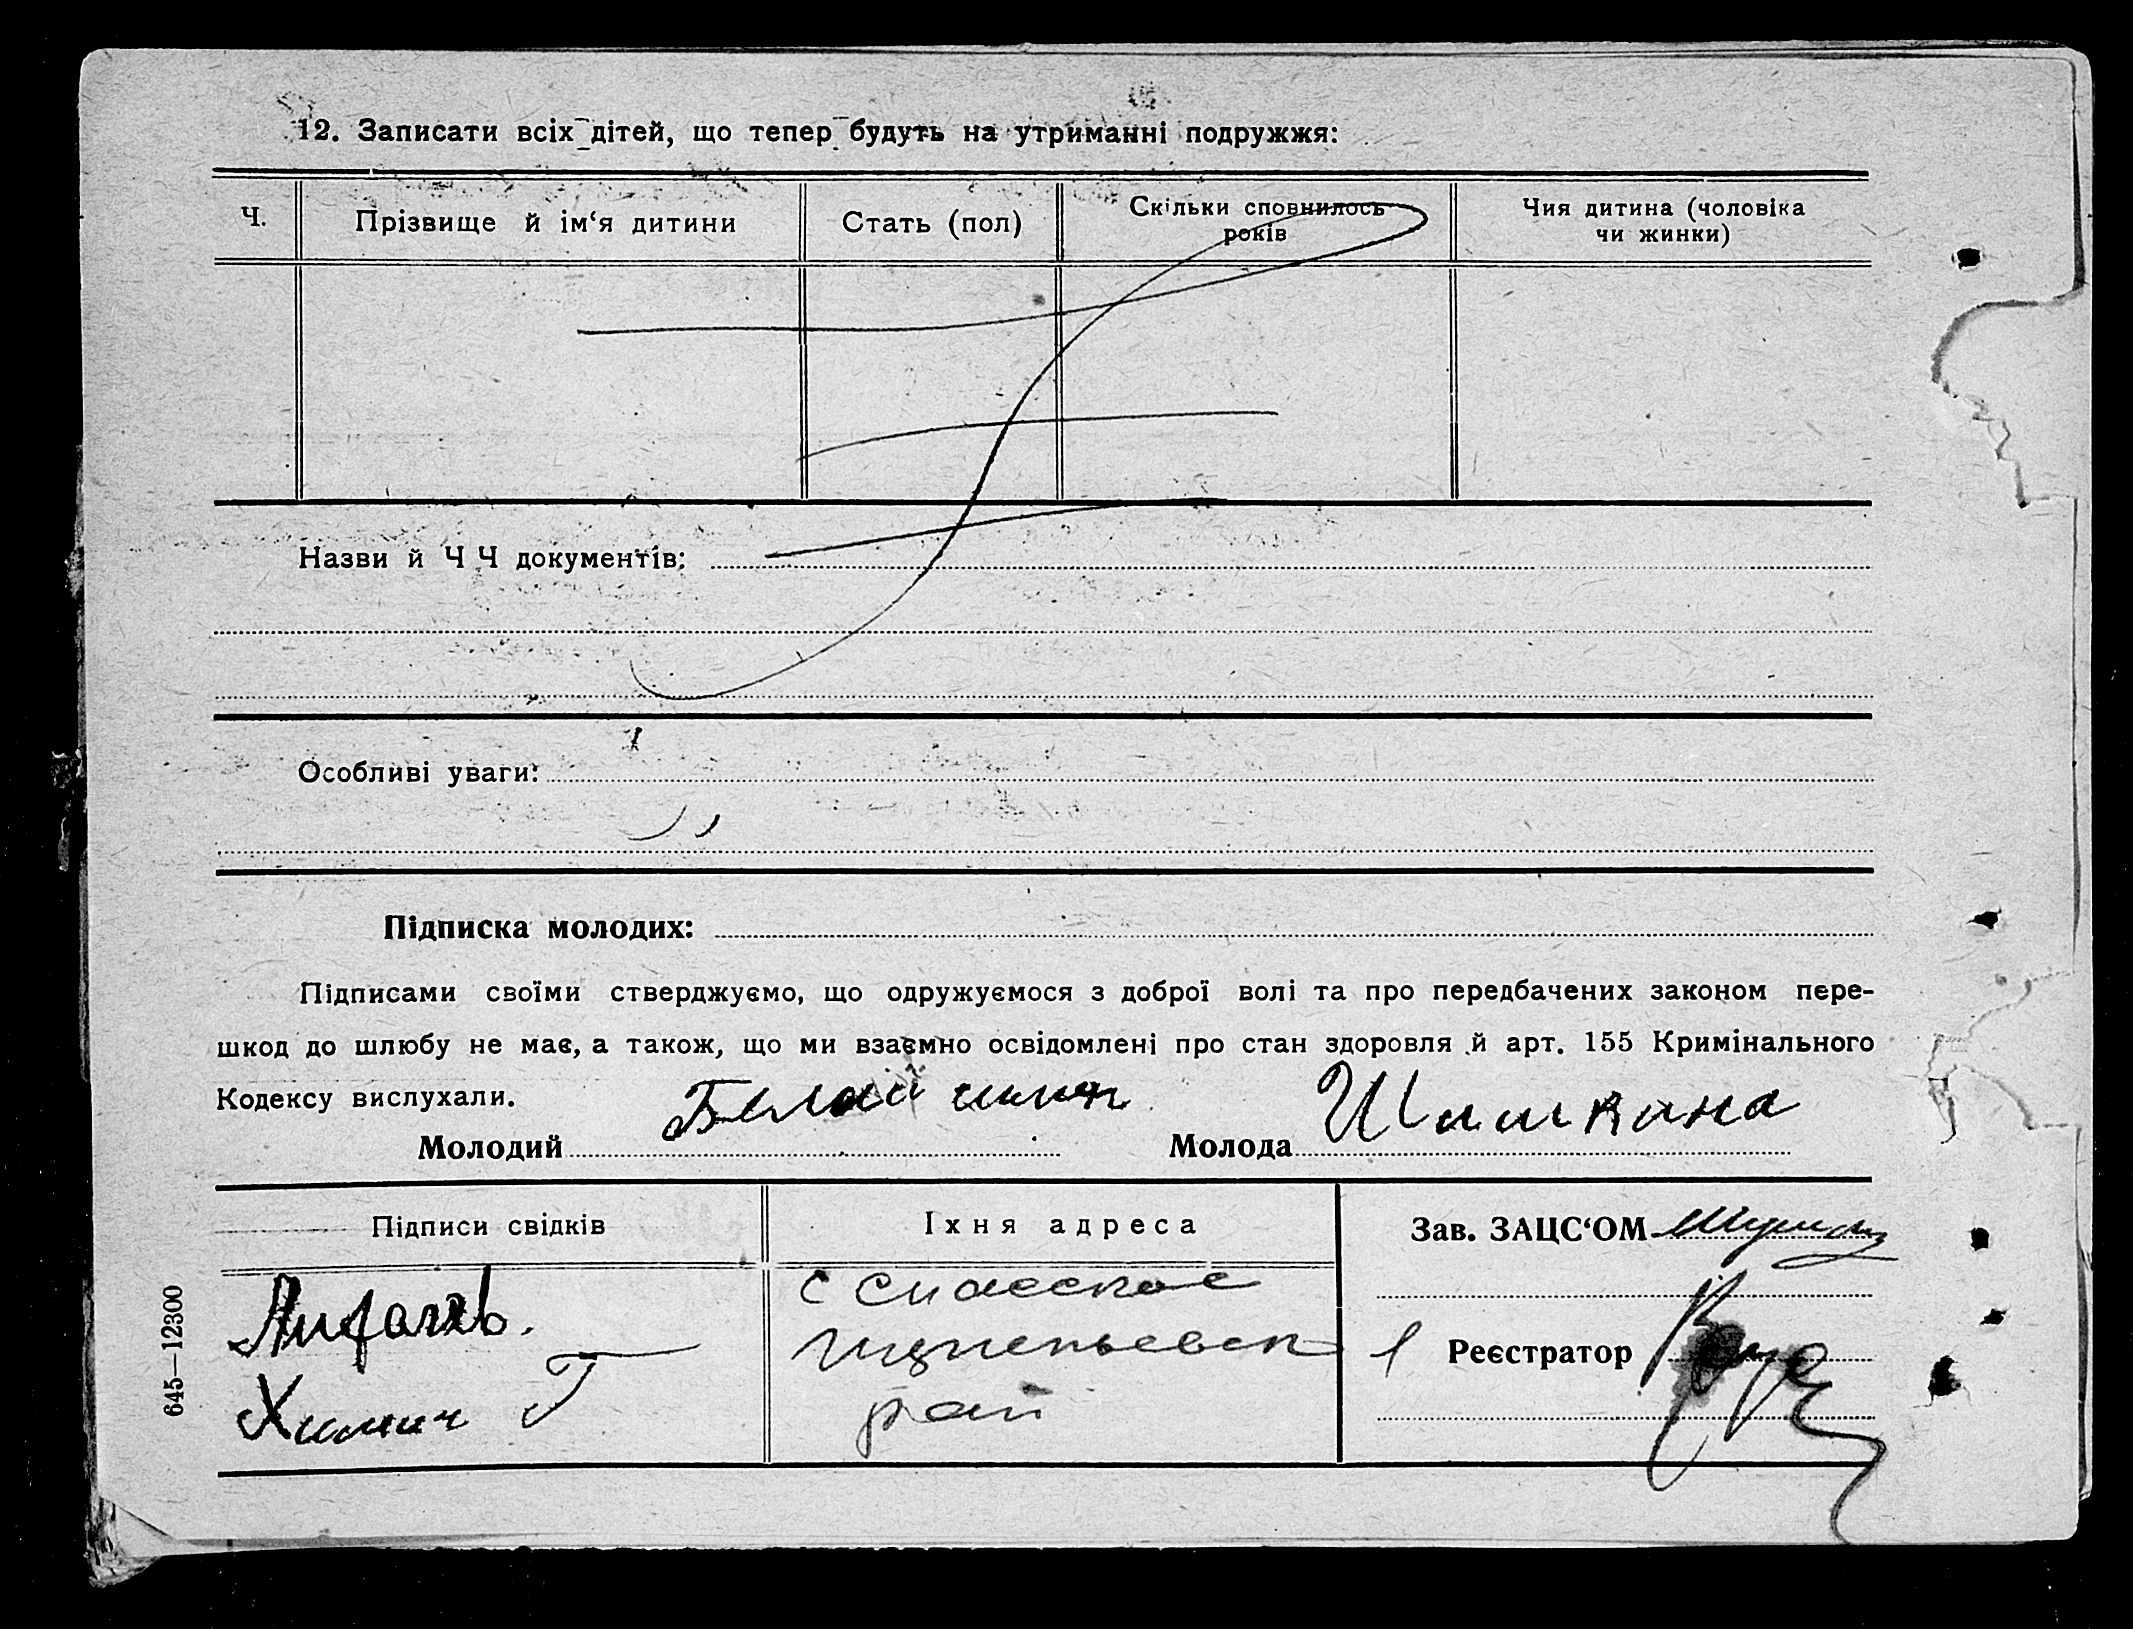 12. Записати всіх дітей, що тепер будуть на утриманні подружжя:
Ч.
Прізвище й ім‘я дитини
Стать (пол)
Скільки сповнилось
років
Чия дитина (чоловіка
чи жинки)
Назви й Ч Ч документів:
Особливі уваги:
Підписка молодих:
Підписами своїми стверджуємо, що одружуємося з доброї волі та про передбачених законом пере-
шкод до шлюбу не має, а також, що ми взаємно освідомлені про стан здоровля й арт. 155 Кримінального
Кодексу вислухали.
Молодий
Молода Шишкина
Підписи свідків
Їхня адреса
Зав. ЗАЦС‘ОМ
Химич Г
с Спасское
рай
Реєстратор
645—12300